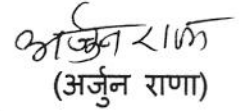 अर्जुन राणा
(अर्जुन राणा)